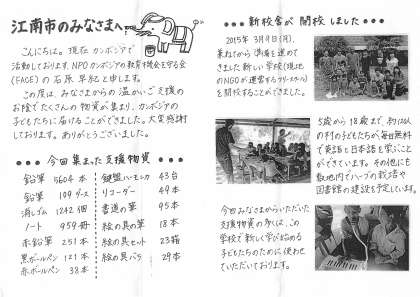 江南市のみなさまへ
こんにちは。現在カンボジアで
活動しております、NPOカンボジアの教育を支える会
(FACE)の石原早紀と申します。
この度は、みなさまからの温かいご支援の
お陰でたくさんの物資が集まり、カンボジアの
子どもたちに届けることができました。大変感謝
しております。ありがとうございました。
●●● 今回集まった支援物資 ●●●
鉛筆 5604本
鉛筆 109ダース
消しゴム 1242個
ノート 959冊
赤鉛筆 251本
黒ボールペン 121本
赤ボールペン 38本
鍵盤ハーモニカ 43台
リコーダー 49本
書道の筆 95本
絵の具の筆 18本
絵の具セット 23箱
絵の具バラ 29本
●●● 新校舎が開校しました ●●●
2015年3月9日(月)、
兼ねてから準備を進めて
きました新しい学校(現地
のNGOが運営するフリースクール)
を開校することができました。
5歳から18歳まで、約120人
の村の子どもたちが毎日無料
で英語と日本語を学ぶこと
ができています。その他にも
敷地内でハーブの栽培や
図書館の建設を予定しています。
今回みなさまからいただいた
支援物資の多くは、この
学校で新しく学び始める
子どもたちのために使わせ
ていただいております。